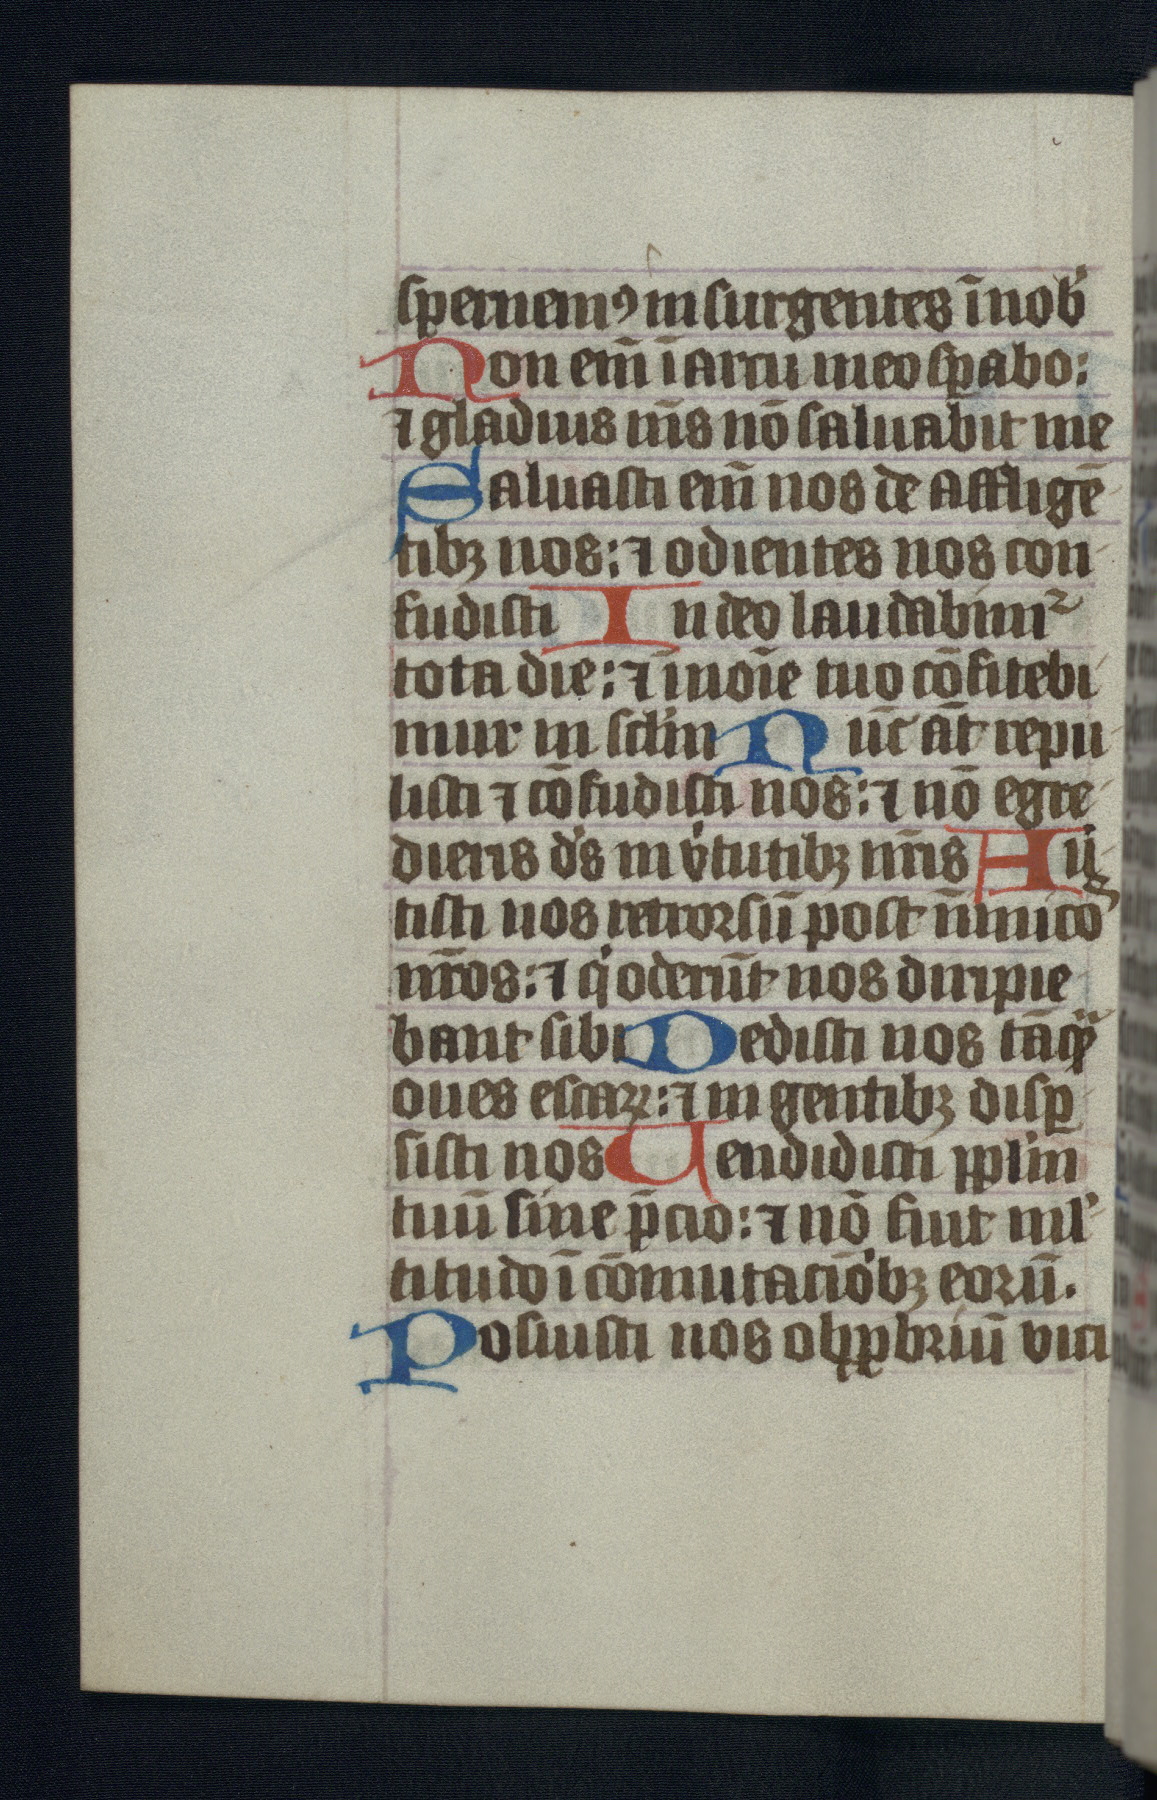 spernemꝰ insurgentes ī nob̾
Non em̄ ī arcu meo sꝑabo:
⁊ gladius m̄s nō saluabit me
Saluasti em̄ nos de affligē
tibꝫ nos: ⁊ odientes nos con
fudisti In deo laudabim᷑
tota die: ⁊ ī noīe tuo cōfitebi
mur in sclm̄ Nūc āt repu
listi ⁊ cōfudisti nos: ⁊ nō egre
dieris ds̄ in v̾tutibꝫ nr̄is Au̾
tisti nos retrorsū post inimīcos
nr̄os: ⁊ qͥ oderūt nos diripie
bant sibi Dedisti nos tāqͣ
oues escaꝝ: ⁊ in gentibꝫ disꝑ
sisti nos Uendidisti ppl̄m
tuū sine p̄cio: ⁊ nō fuit ml̾
titudo ī cōmutaciōibꝫ eorū.
Posuisti nos obꝓbriū vici